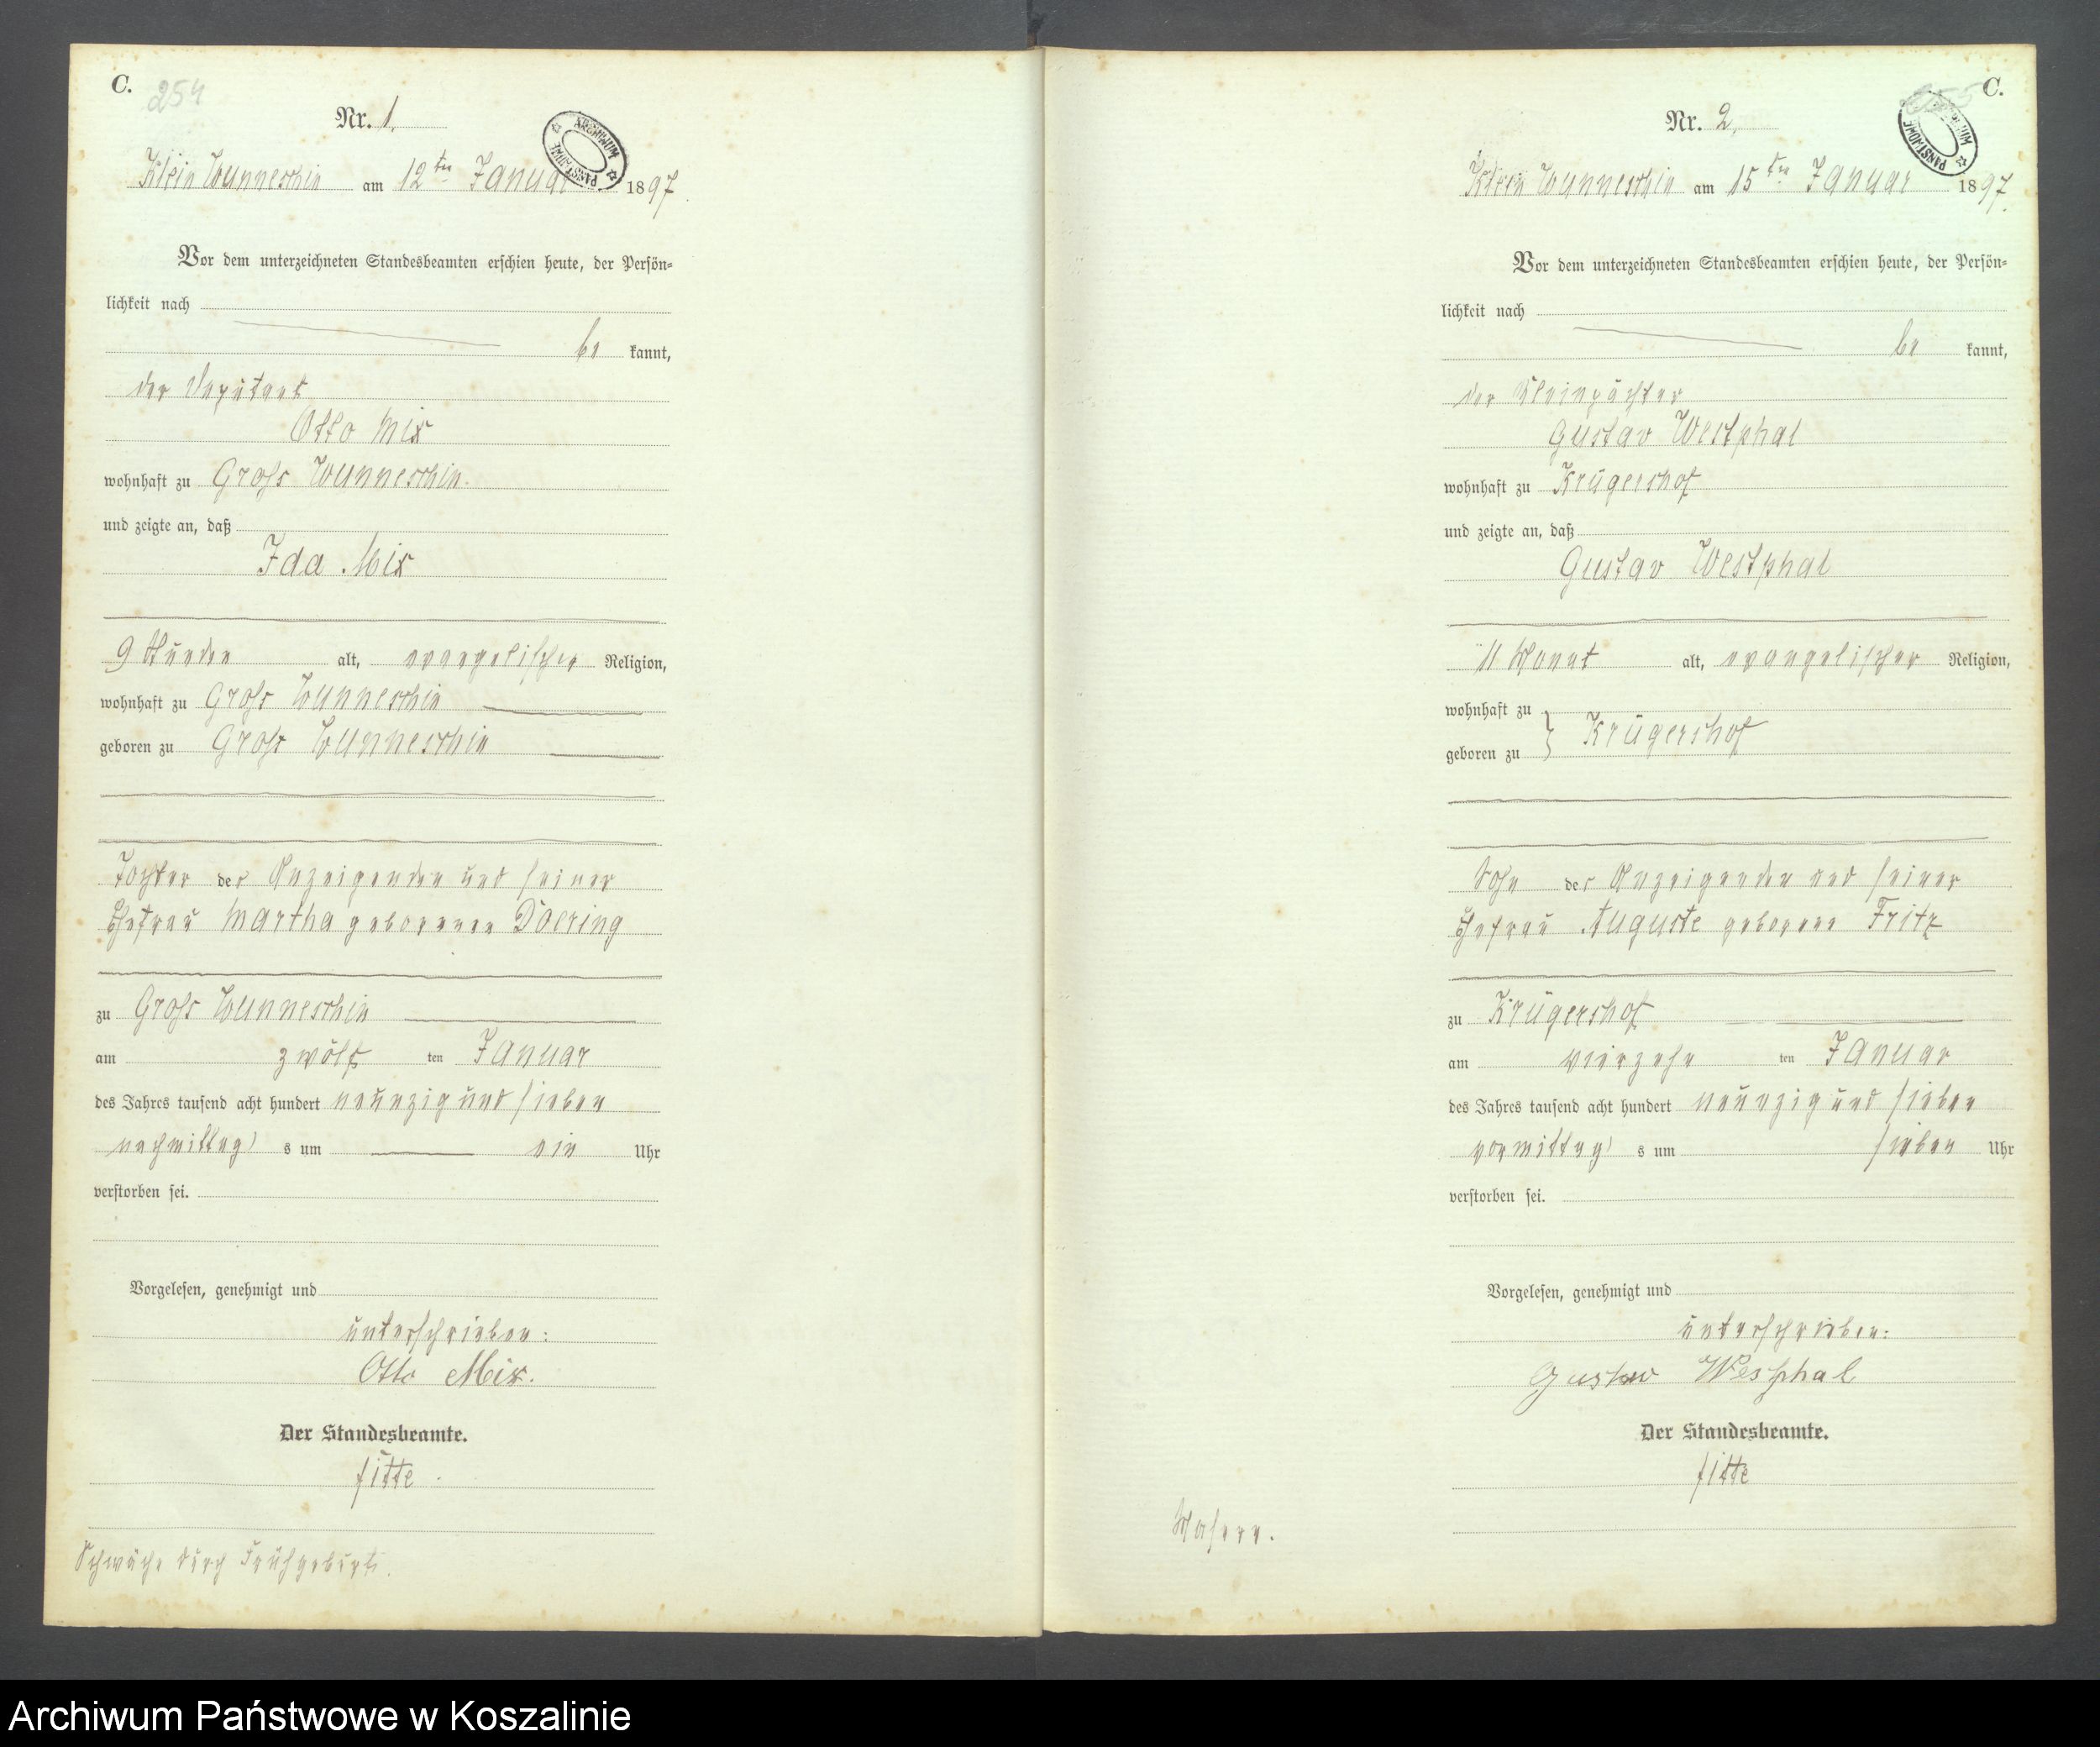 C.
254
Nr. 1.
Klein Wunneschin am 12ten Januar 1897.
Vor dem unterzeichneten Standesbeamten erschien heute, der Persön-
lichkeit nach
be kannt,
der Deputant
Otto Mix
wohnhaft zu Groß Wunneschin.
und zeigte an, daß
Ida Mix
9 Stunden alt, evangelischer Religion,
wohnhaft zu Groß Wunneschin
geboren zu Groß Wunneschin
Tochter des Anzeigenden und seiner
Ehefrau Martha geborenen Doering
zu Groß Wunneschin
am zwölf ten Januar
des Jahres tausend acht hundert neunzig und sieben
nachmittag s um ein Uhr
verstorben sei.
Vorgelesen, genehmigt und
unterschrieben:
Otto Mix.
Der Standesbeamte.
Fitte.
Schwäche durch Frühgeburt.
C.
255
Nr. 2.
Klein Wunneschin am 15ten Januar 1897.
Vor dem unterzeichneten Standesbeamten erschien heute, der Persön-
lichkeit nach
be kannt,
der Kleinpächter
Gustav Westphal
wohnhaft zu Krügershof
und zeigte an, daß
Gustav Westphal
11 Monat alt, evangelischer Religion,
wohnhaft zu
geboren zu } Krügershof
Sohn des Anzeigenden und seiner
Ehefrau Auguste geborene Fritz
zu Krügershof
am vierzehn ten Januar
des Jahres tausend acht hundert neunzig und sieben
vormittag s um sieben Uhr
verstorben sei.
Vorgelesen, genehmigt und
unterschrieben:
Gustav Westphal
Der Standesbeamte.
Fitte
Masern.
Archiwum Państwowe w Koszalinie